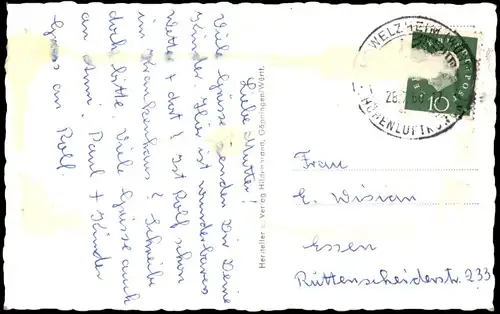 Liebe Mutter!
Viele Grüsse senden Dir Deine
Kinder. Hier ist wunderbares
Wetter + dort? Ist Rolf schon
im Krankenhaus? Schreibe
doch bitte. Viele Grüsse auch
an Paul + Kinder
Gruss an Rolf.
Hersteller u. Verlag Hildenbrand, Göppingen/Württ.
WELZHEIM
HÖHENLUFTKURORT
10
Frau
E. Wisian
Essen
Rüttenscheiderstr. 233